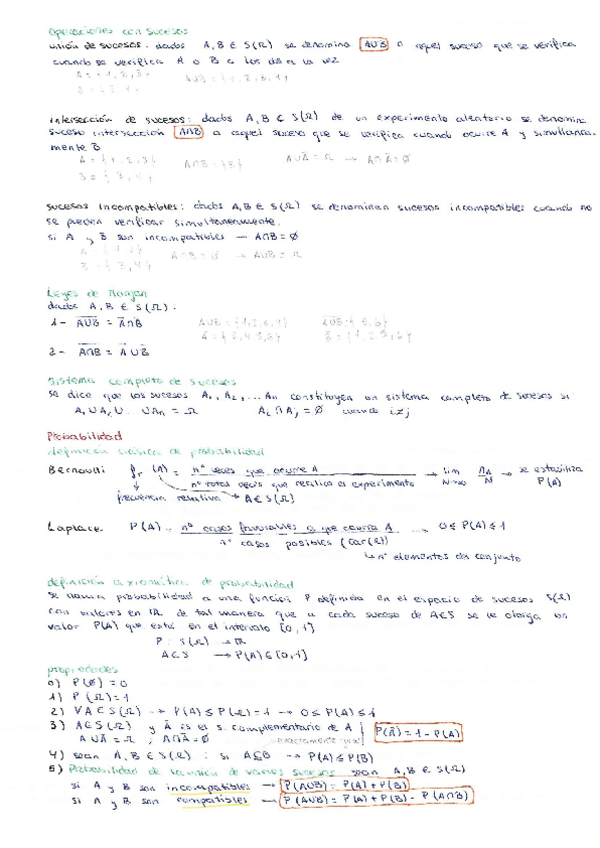 operaciones con sucesos
unión de sucesos: dados A, B ∈ S(Ω) se denomina A∪B a aquel suceso que se verifica
cuando se verifica A o B o los dos a la vez
A = {1, 2, 3} A∪B = {1, 2, 3, 4}
intersección de sucesos: dados A, B ∈ S(Ω) de un experimento aleatorio se denomina
suceso intersección A∩B a aquel suceso que se verifica cuando ocurre A y simultanea-
mente B
A = {1, 2, 3} A∩B = {3} A∪Ā = Ω → A∩Ā = Ø
B = {3, 4}
sucesos incompatibles: dados A, B ∈ S(Ω) se denominan sucesos incompatibles cuando no
se pueden verificar simultaneamente.
si A y B son incompatibles — A∩B = Ø
A∩B = Ø → A∪B = Ω
B = {3, 4}
Leyes de Morgan
dados A, B ∈ S(Ω):
1- A̅∪̅B̅ = Ā∩B̅
2- A̅∩̅B̅ = Ā∪B̅
Sistema completo de sucesos
se dice que los sucesos A₁, A₂, ... An constituyen un sistema completo de sucesos si
A₁∪A₂∪...∪An = Ω Ai∩Aj = Ø cuando i≠j
Probabilidad
definición clásica de probabilidad
Bernoulli fr (A) = nº veces que ocurre A → lim nA → se estabiliza
nº totas veces que realiza el experimento N→∞ N P(A)
frecuencia relativa A ∈ S(Ω)
Laplace P(A) = nº casos favorables a que ocurra A ... 0 ≤ P(A) ≤ 1
nº casos posibles (car(Ω))
↳ nº elementos del conjunto
definición axiomática de probabilidad
se llama probabilidad a una función P definida en el espacio de sucesos S(Ω)
con valores en ℝ de tal manera que a cada suceso de A∈S se le otorga un
valor P(A) que está en el intervalo [0,1]
P: S(Ω) → ℝ
A∈S → P(A) ∈ [0,1]
propiedades
0) P(Ø) = 0
1) P(Ω) = 1
2) ∀A∈S(Ω) → P(A) ≤ P(Ω) = 1 → 0 ≤ P(A) ≤ 1
3) A∈S(Ω) y Ā es el s. complementario de A P(Ā) = 1 - P(A)
A∪Ā = Ω ; A∩Ā = Ø
4) sean A, B ∈ S(Ω) : si A⊆B → P(A) ≤ P(B)
5) Probabilidad de la unión de varios sucesos sean A, B ∈ S(Ω)
si A y B son incompatibles → P(A∪B) = P(A) + P(B)
si A y B son compatibles → P(A∪B) = P(A) + P(B) - P(A∩B)